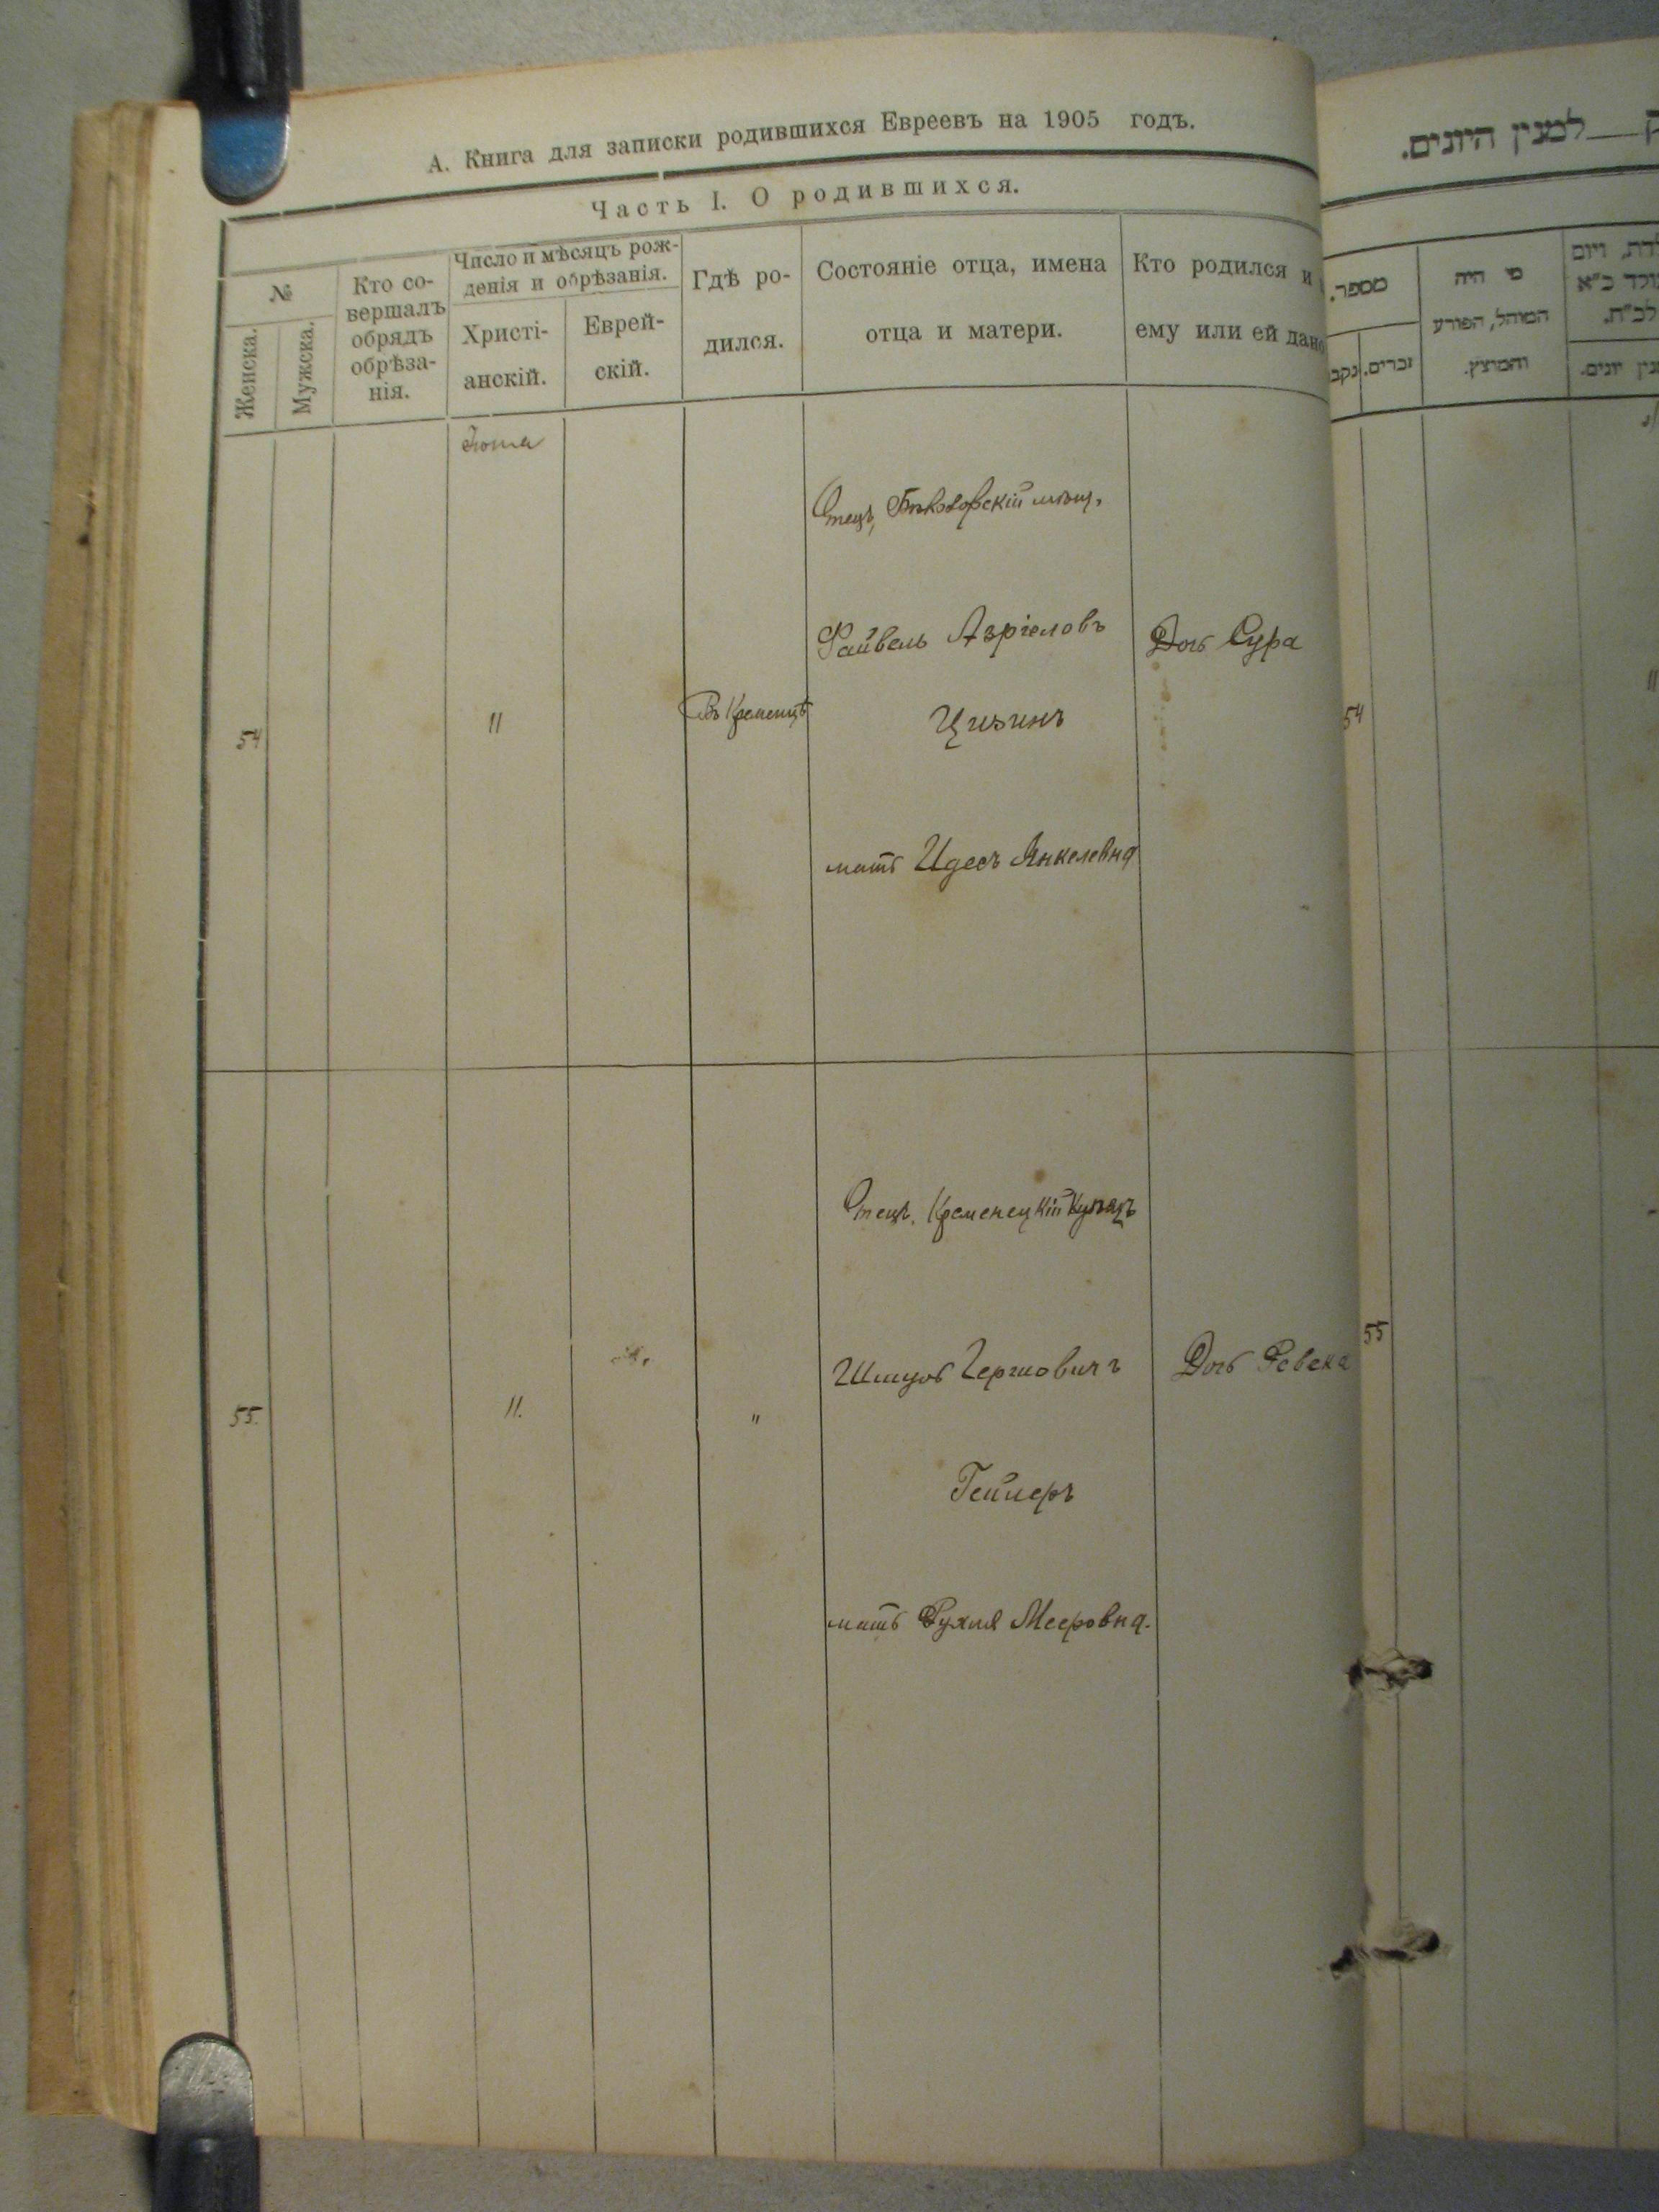 А. Книга для записки родившихся Евреевъ на 1905 годъ.
Часть I. О родившихся.
№
Женска.
Мужска.
Кто со-
вершалъ
обрядъ
обрѣза-
нія.
Число и мѣсяцъ рож-
денія и обрѣзанія.
Христі-
анскій.
Еврей-
скій.
Гдѣ ро-
дился.
Состояніе отца, имена
отца и матери.
Кто родился и
ему или ей дано
54
11
Въ Кременцѣ
Отецъ,
Файвель Азріеловъ
Цизинъ
мать Идесъ Янкелевна
Дочь Сура
55.
11.
"
Отецъ, Кременецкій Купецъ
Шмуль Гершовичъ
мать Рухля Мееровна.
Дочь Ревека
למנין היונים.
מספר.
זכרים.
נקב
מי היה
המוהל, הפורע
והמוצץ.
54
55